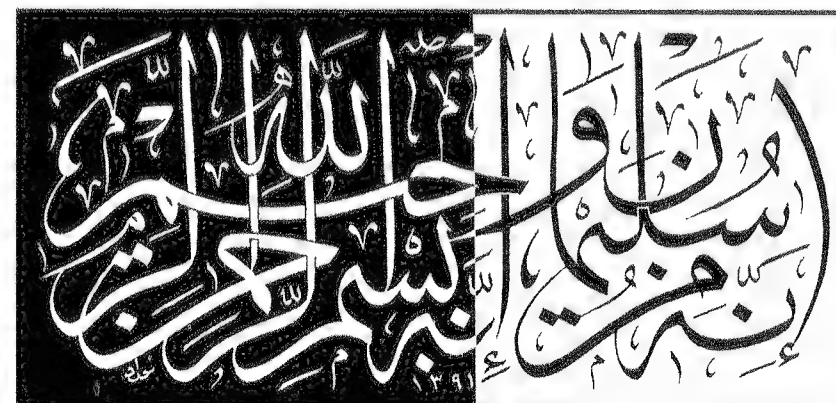 إِنَّهُ مِنْ سُلَيْمَانَ وَإِنَّهُ بِسْمِ اللَّهِ الرَّحْمَنِ الرَّحِيمِ
١٣٩١